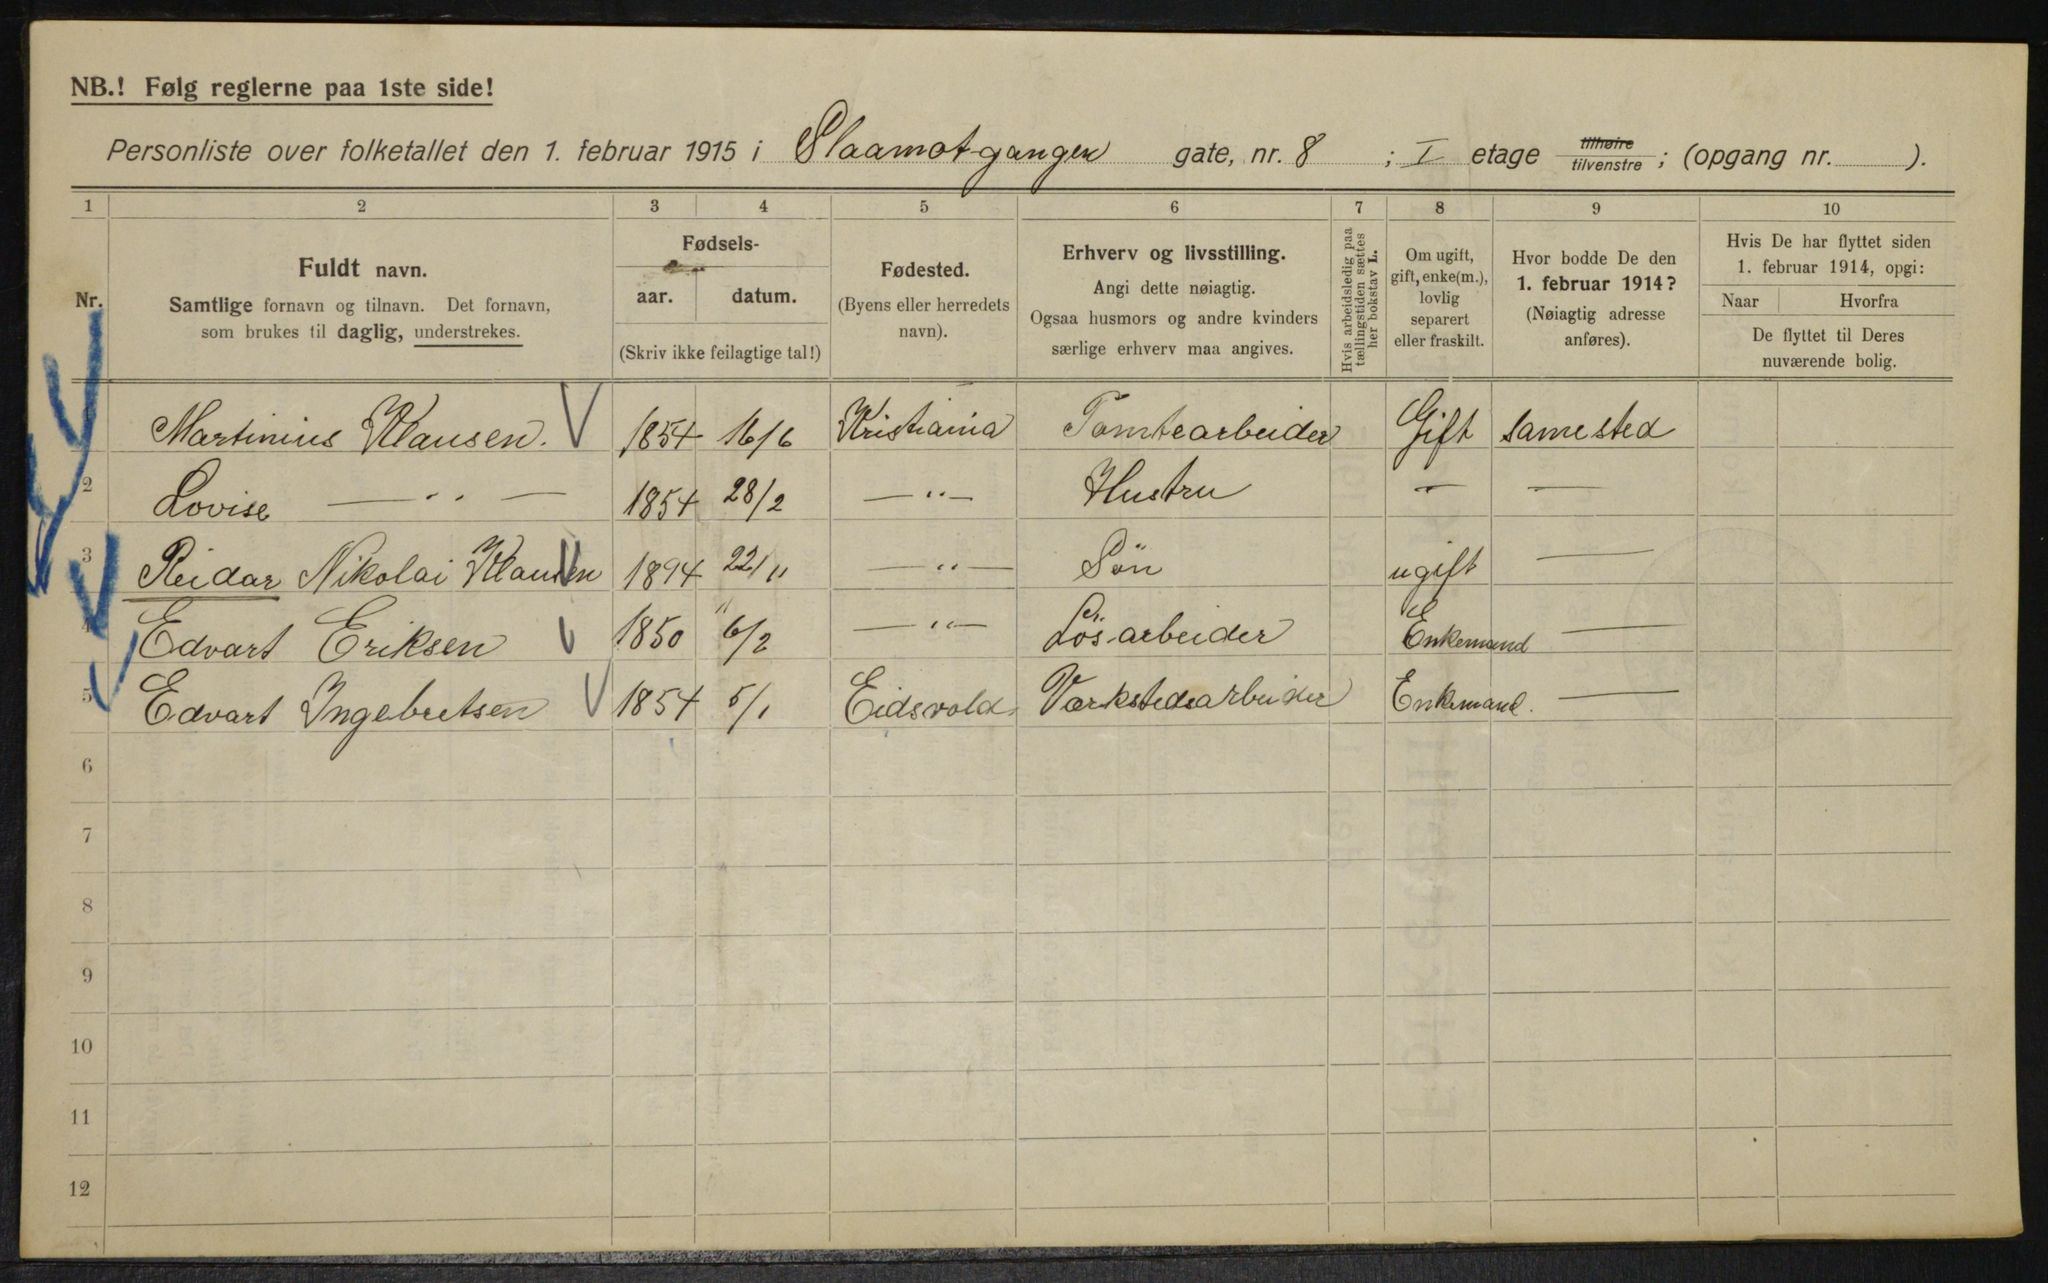 NB.! Følg reglerne paa 1ste side!
Personliste over folketallet den 1. februar 1915 i Slaamotgangen gate, nr. 8 ; I etage tilhøire tilvenstre ; (opgang nr. ).
1 2 3 4 5 6 7 8 9 10
Nr.
Fuldt navn.
Samtlige fornavn og tilnavn. Det fornavn,
som brukes til daglig, understrekes.
Fødsels-
aar. datum.
(Skriv ikke feilagtige tal!)
Fødested.
(Byens eller herredets
navn).
Erhverv og livsstilling.
Angi dette nøiagtig.
Ogsaa husmors og andre kvinders
særlige erhverv maa angives.
Hvis arbeidsledig paa
tællingstiden sættes
her bokstav L.
Om ugift,
gift, enke(m.),
lovlig
separert
eller fraskilt.
Hvor bodde De den
1. februar 1914?
(Nøiagtig adresse
anføres).
Hvis De har flyttet siden
1. februar 1914, opgi:
Naar Hvorfra
De flyttet til Deres
nuværende bolig.
1 Martinius Klausen. 1854 16/6 Kristiania Tomtearbeider Gift samested
2 Lovise — " — 1854 28/2 — " — Hustru — —
3 Reidar Nikolai Klausen 1894 22/11 — " — Sön ugift —
4 Edvart Eriksen 1850 6/2 — " — Lösarbeider Enkemand —
5 Edvart Ingebretsen 1854 5/1 Eidsvold Værkstedsarbeider Enkemand. —
6
7
8
9
10
11
12